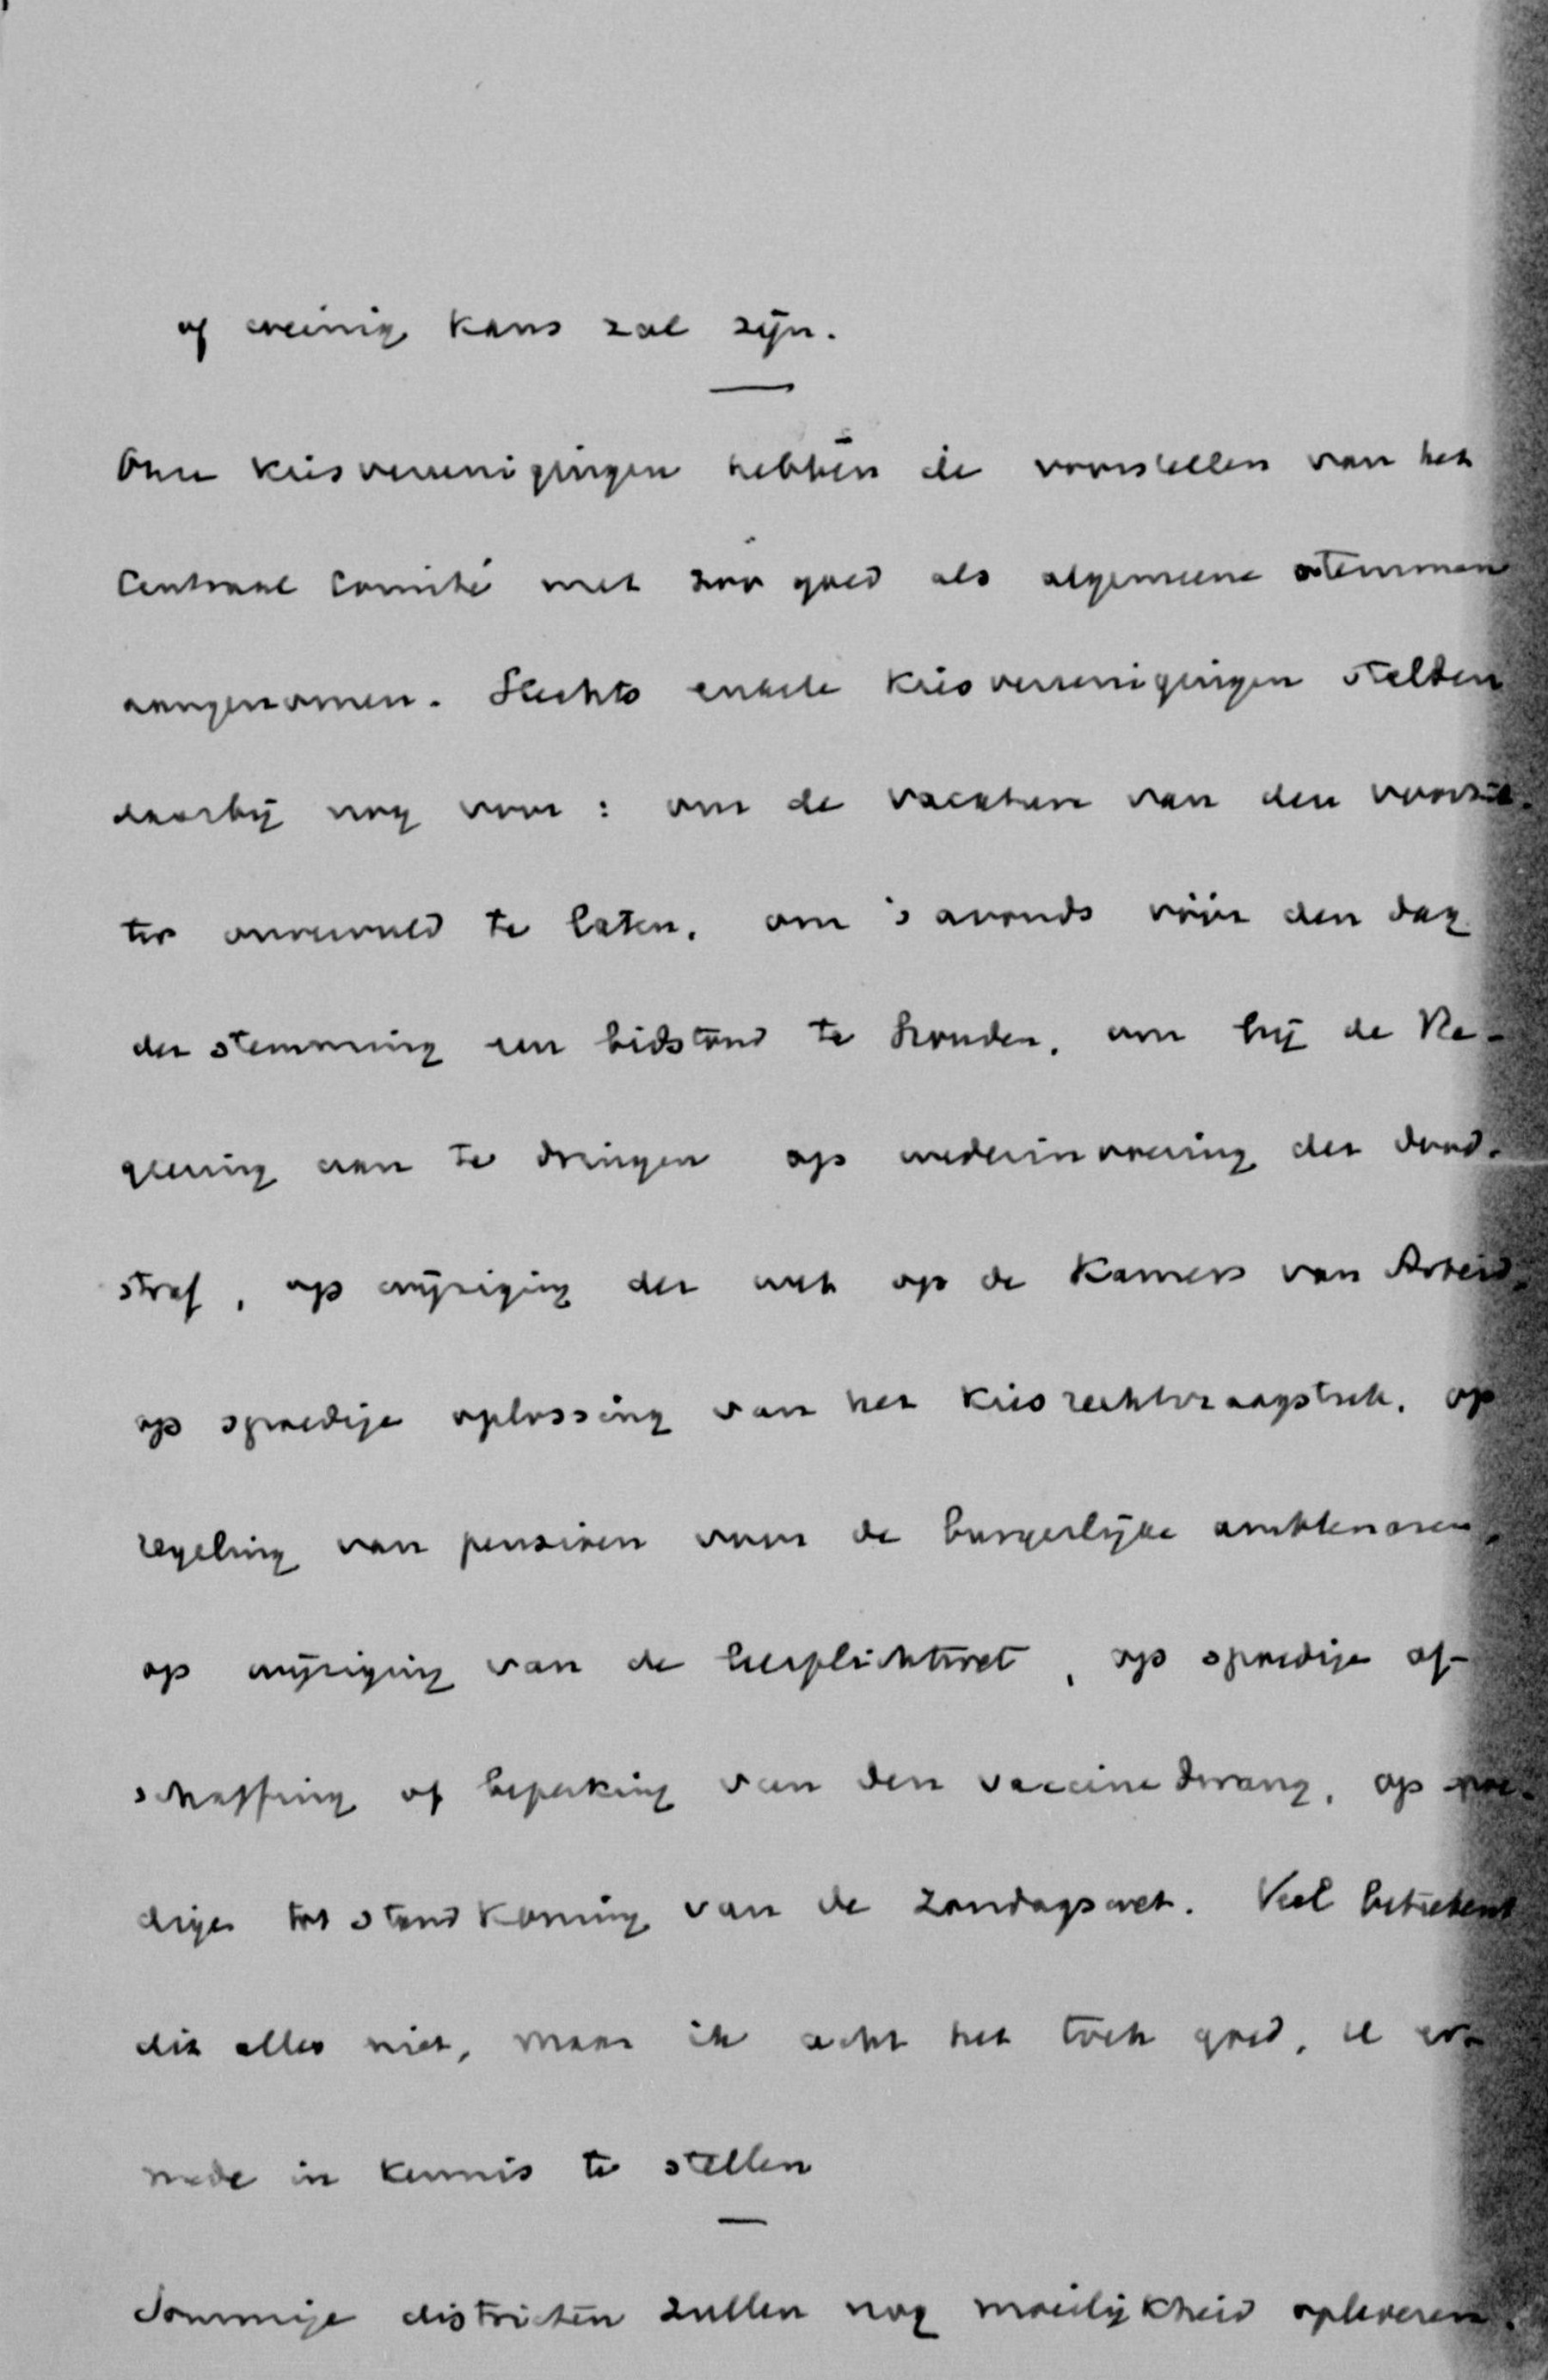 of weinig kans zal zijn.
Onze kiesvereenigingen hebben de voorstellen van het
Centraal Comité met zoo goed als algemeene stemmen
aangenomen. Slechts enkele kiesvereenigingen stelden
daarbij nog voor: om de vacature van den voorzit-
ter onvervuld te laten, om 's avonds vóór den dag
der stemming een bidstond te houden, om bij de Re-
geering aan te dringen op wederinvoering der dood-
straf, op wijziging der wet op de Kamers van Arbeid,
op spoedige oplossing van het kiesrechtvraagstuk, op
regeling van pensioen voor de burgerlijke ambtenaren,
op wijziging van de leerplichtwet, op spoedige af-
schaffing of beperking van den vaccinedwang, op spoe-
dige totstandkoming van de Zondagswet. Veel beteekent
dit alles niet, maar ik acht het toch goed, U er-
mede in kennis te stellen
Sommige districten zullen nog moeilijkheid opleveren.